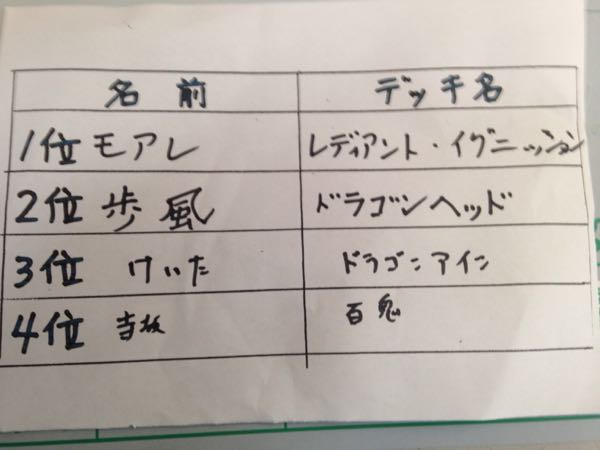 名前 デッキ名
1位 モアレ レディアント・イグニッション
2位 歩風 ドラゴンヘッド
3位 けいた ドラゴニアイン
4位 吉坂 百鬼